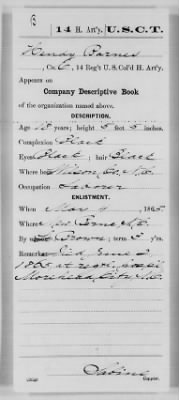 B
14 H. Art'y. U.S.C.T.
Henry Barnes
, Co. C, 14 Reg't U. S. Col'd H. Art'y.
Appears on
Company Descriptive Book
of the organization named above.
DESCRIPTION.
Age years; height 5 feet 5 inches.
Complexion Black
Eyes Black; hair Black
Where born Wilson Co, N.C.
Occupation
ENLISTMENT.
When May, 1865.
Where New Berne N.C.
By whom Brown; term 3 y'rs.
Remarks: Died June
1865 at
Morehead City N.C.
Copyist.